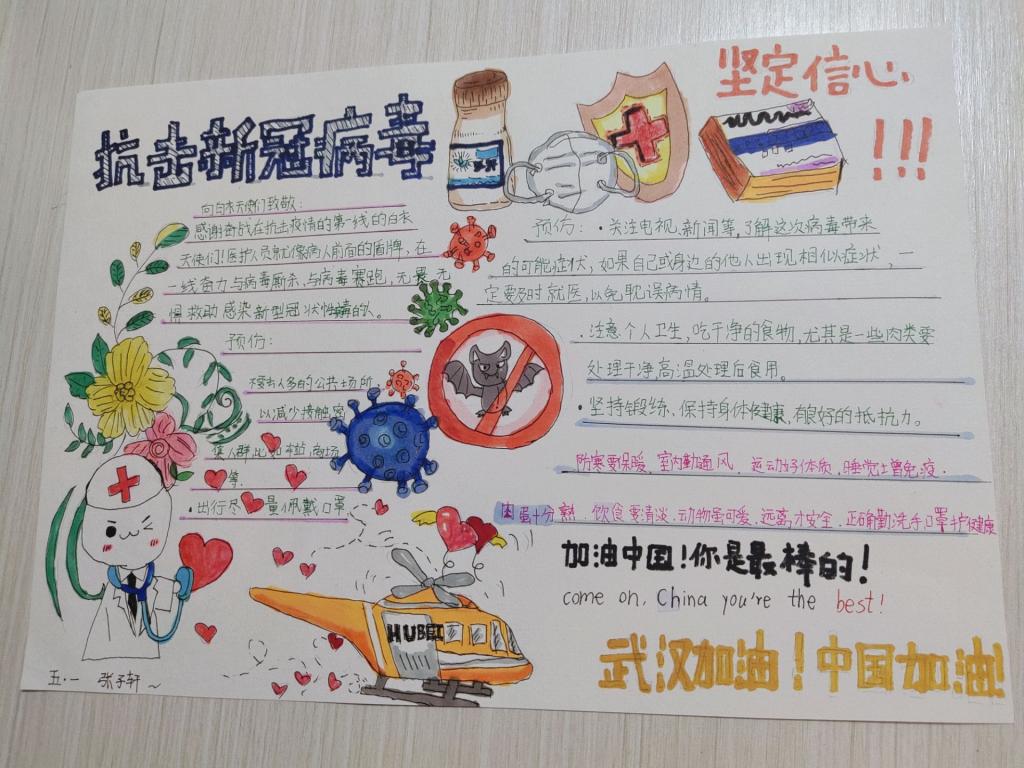 抗击新冠病毒
坚定信心
!!!
向白衣天使们致敬:
感谢奋战在抗击疫情的第一线的白衣
天使们!医护人员就像病人前面的盾牌,在
一线奋力与病毒厮杀,与病毒赛跑,无畏无
惧救助感染新型冠状性毒的人。
预伤:
不要去人多的公共场所,
以减少接触密
集人群比如车站,商场
等.
·出行尽量佩戴口罩
预伤:·关注电视、新闻等,了解这次病毒带来
的可能症状,如果自己或身边的他人出现相似症状,一
定要及时就医,以免耽误病情。
·注意个人卫生,吃干净的食物,尤其是一些肉类要
处理干净,高温处理后食用。
·坚持锻练、保持身体健康,有良好的抵抗力。
防寒要保暖,室内勤通风.运动好体质,睡觉增免疫.
肉蛋十分熟.饮食要清淡.动物虽可爱.远离才安全.正确勤洗手,口罩护健康
加油中国!你是最棒的!
come on, China you're the best!
武汉加油!中国加油!
HUBEI
五·一 张子轩~